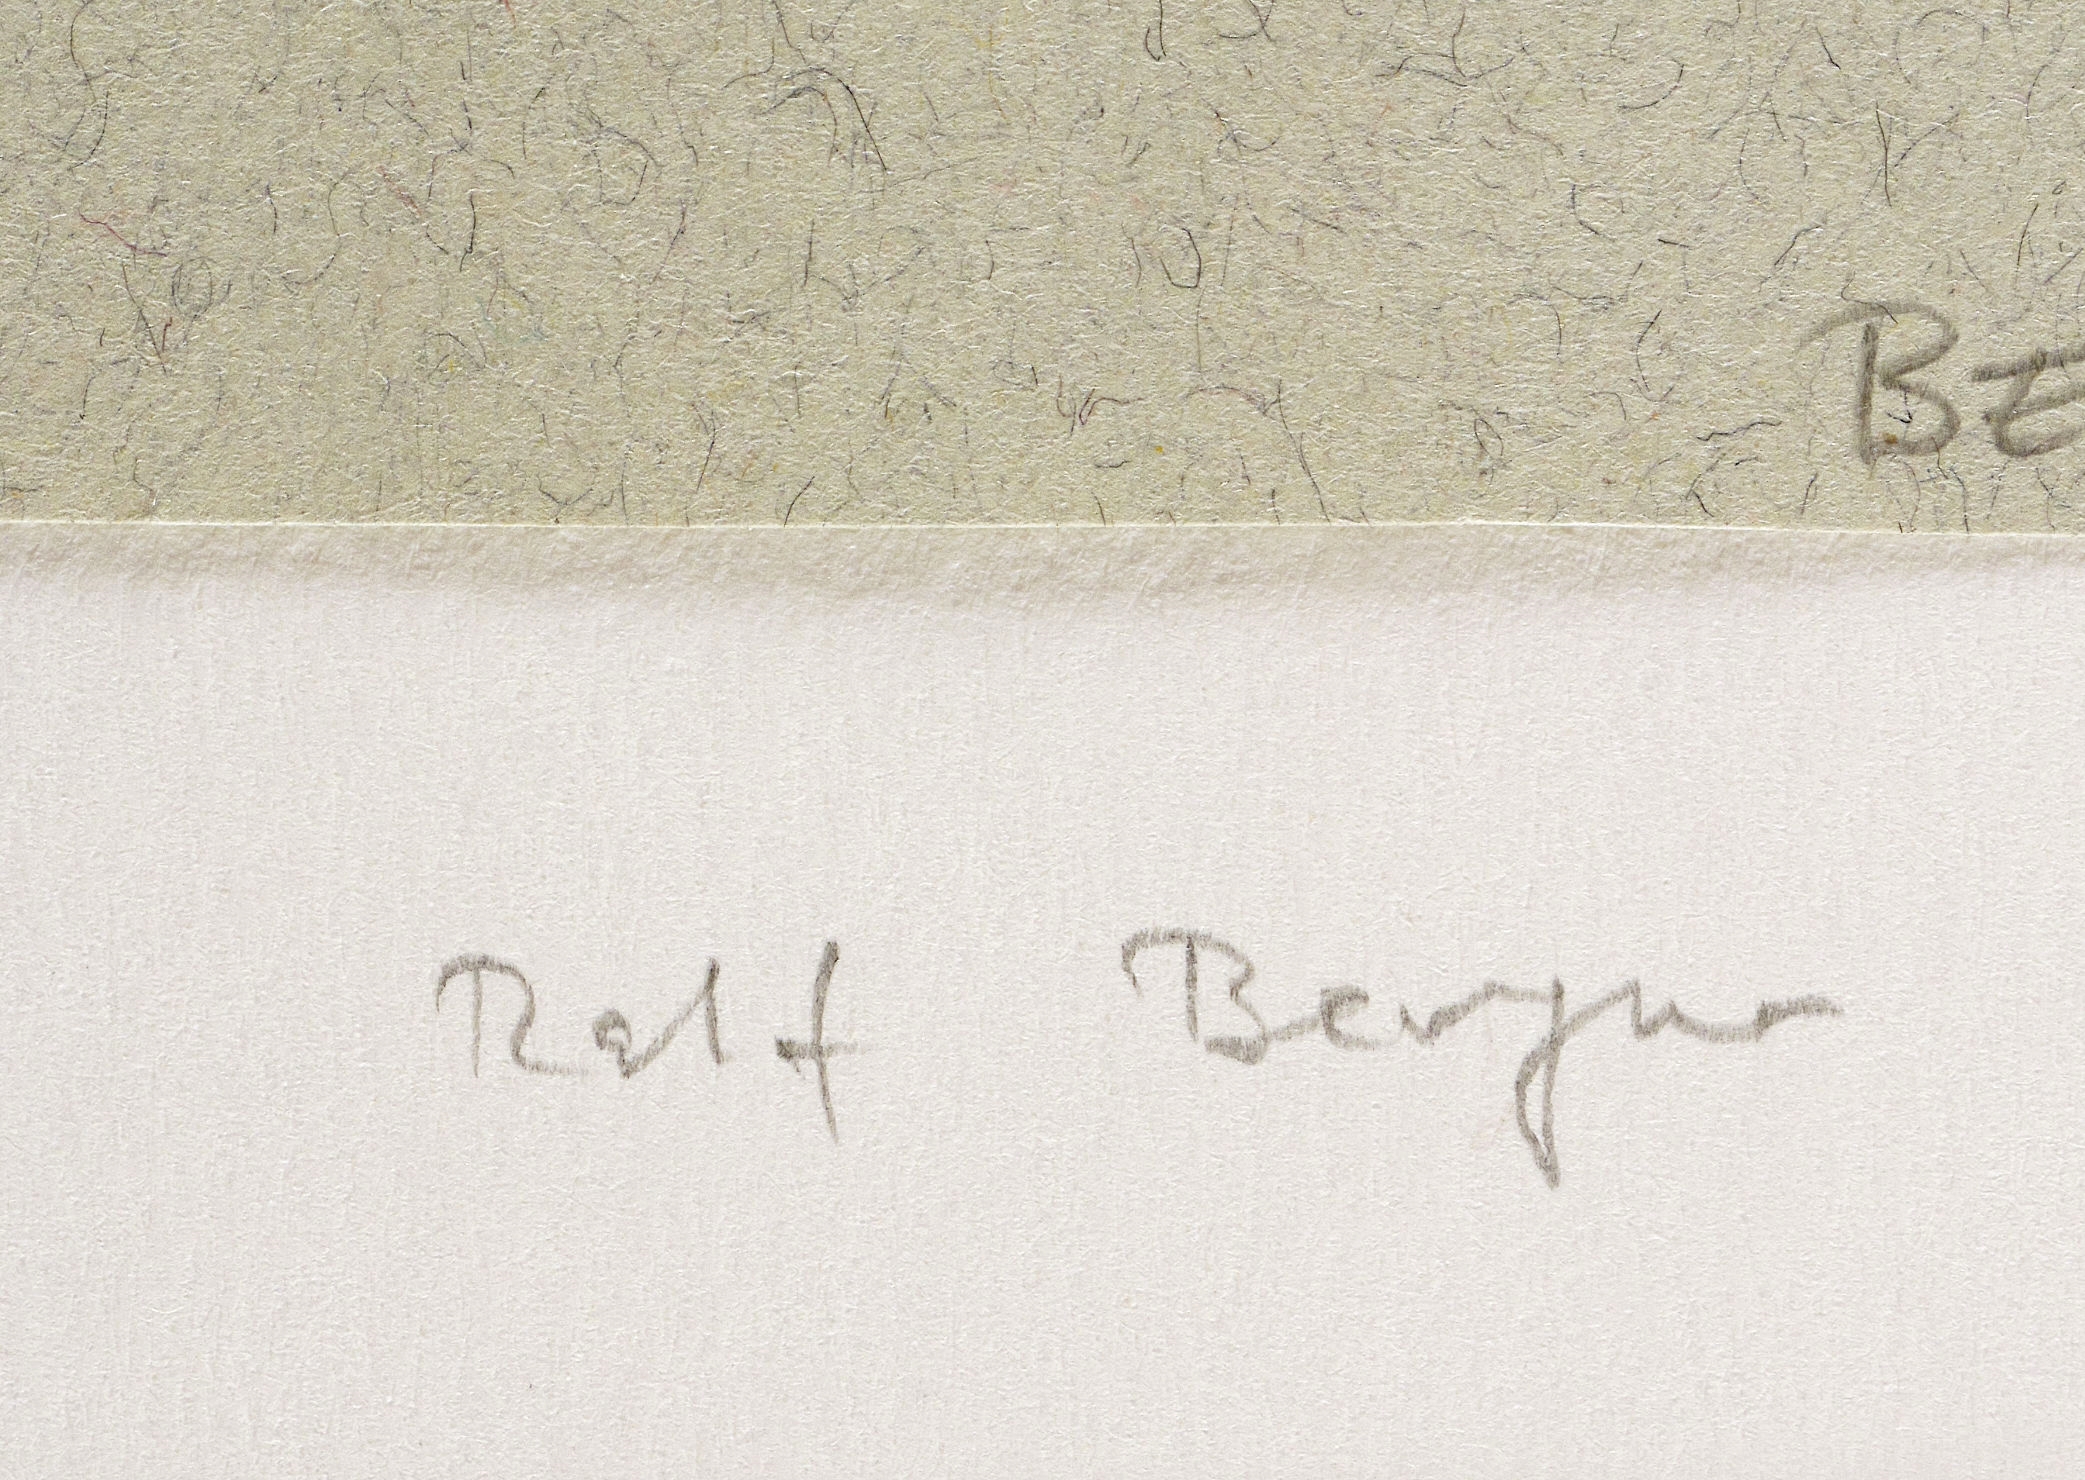 BE
Ralf Berger